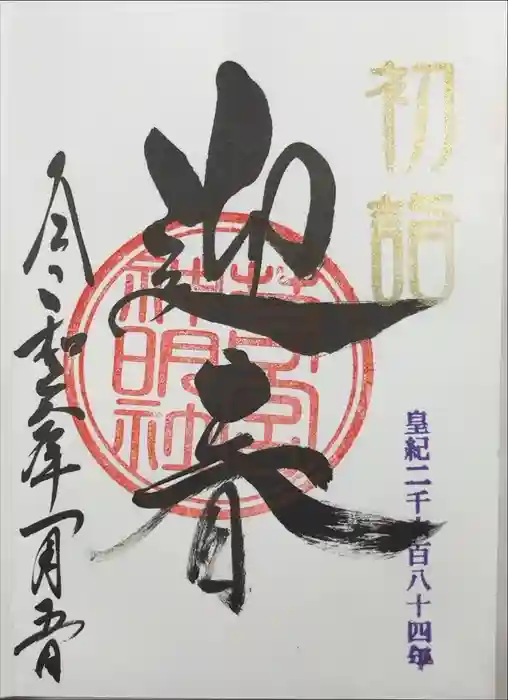 初詣
皇紀二千六百八十四年
迎春
神明社
令和六年一月五日